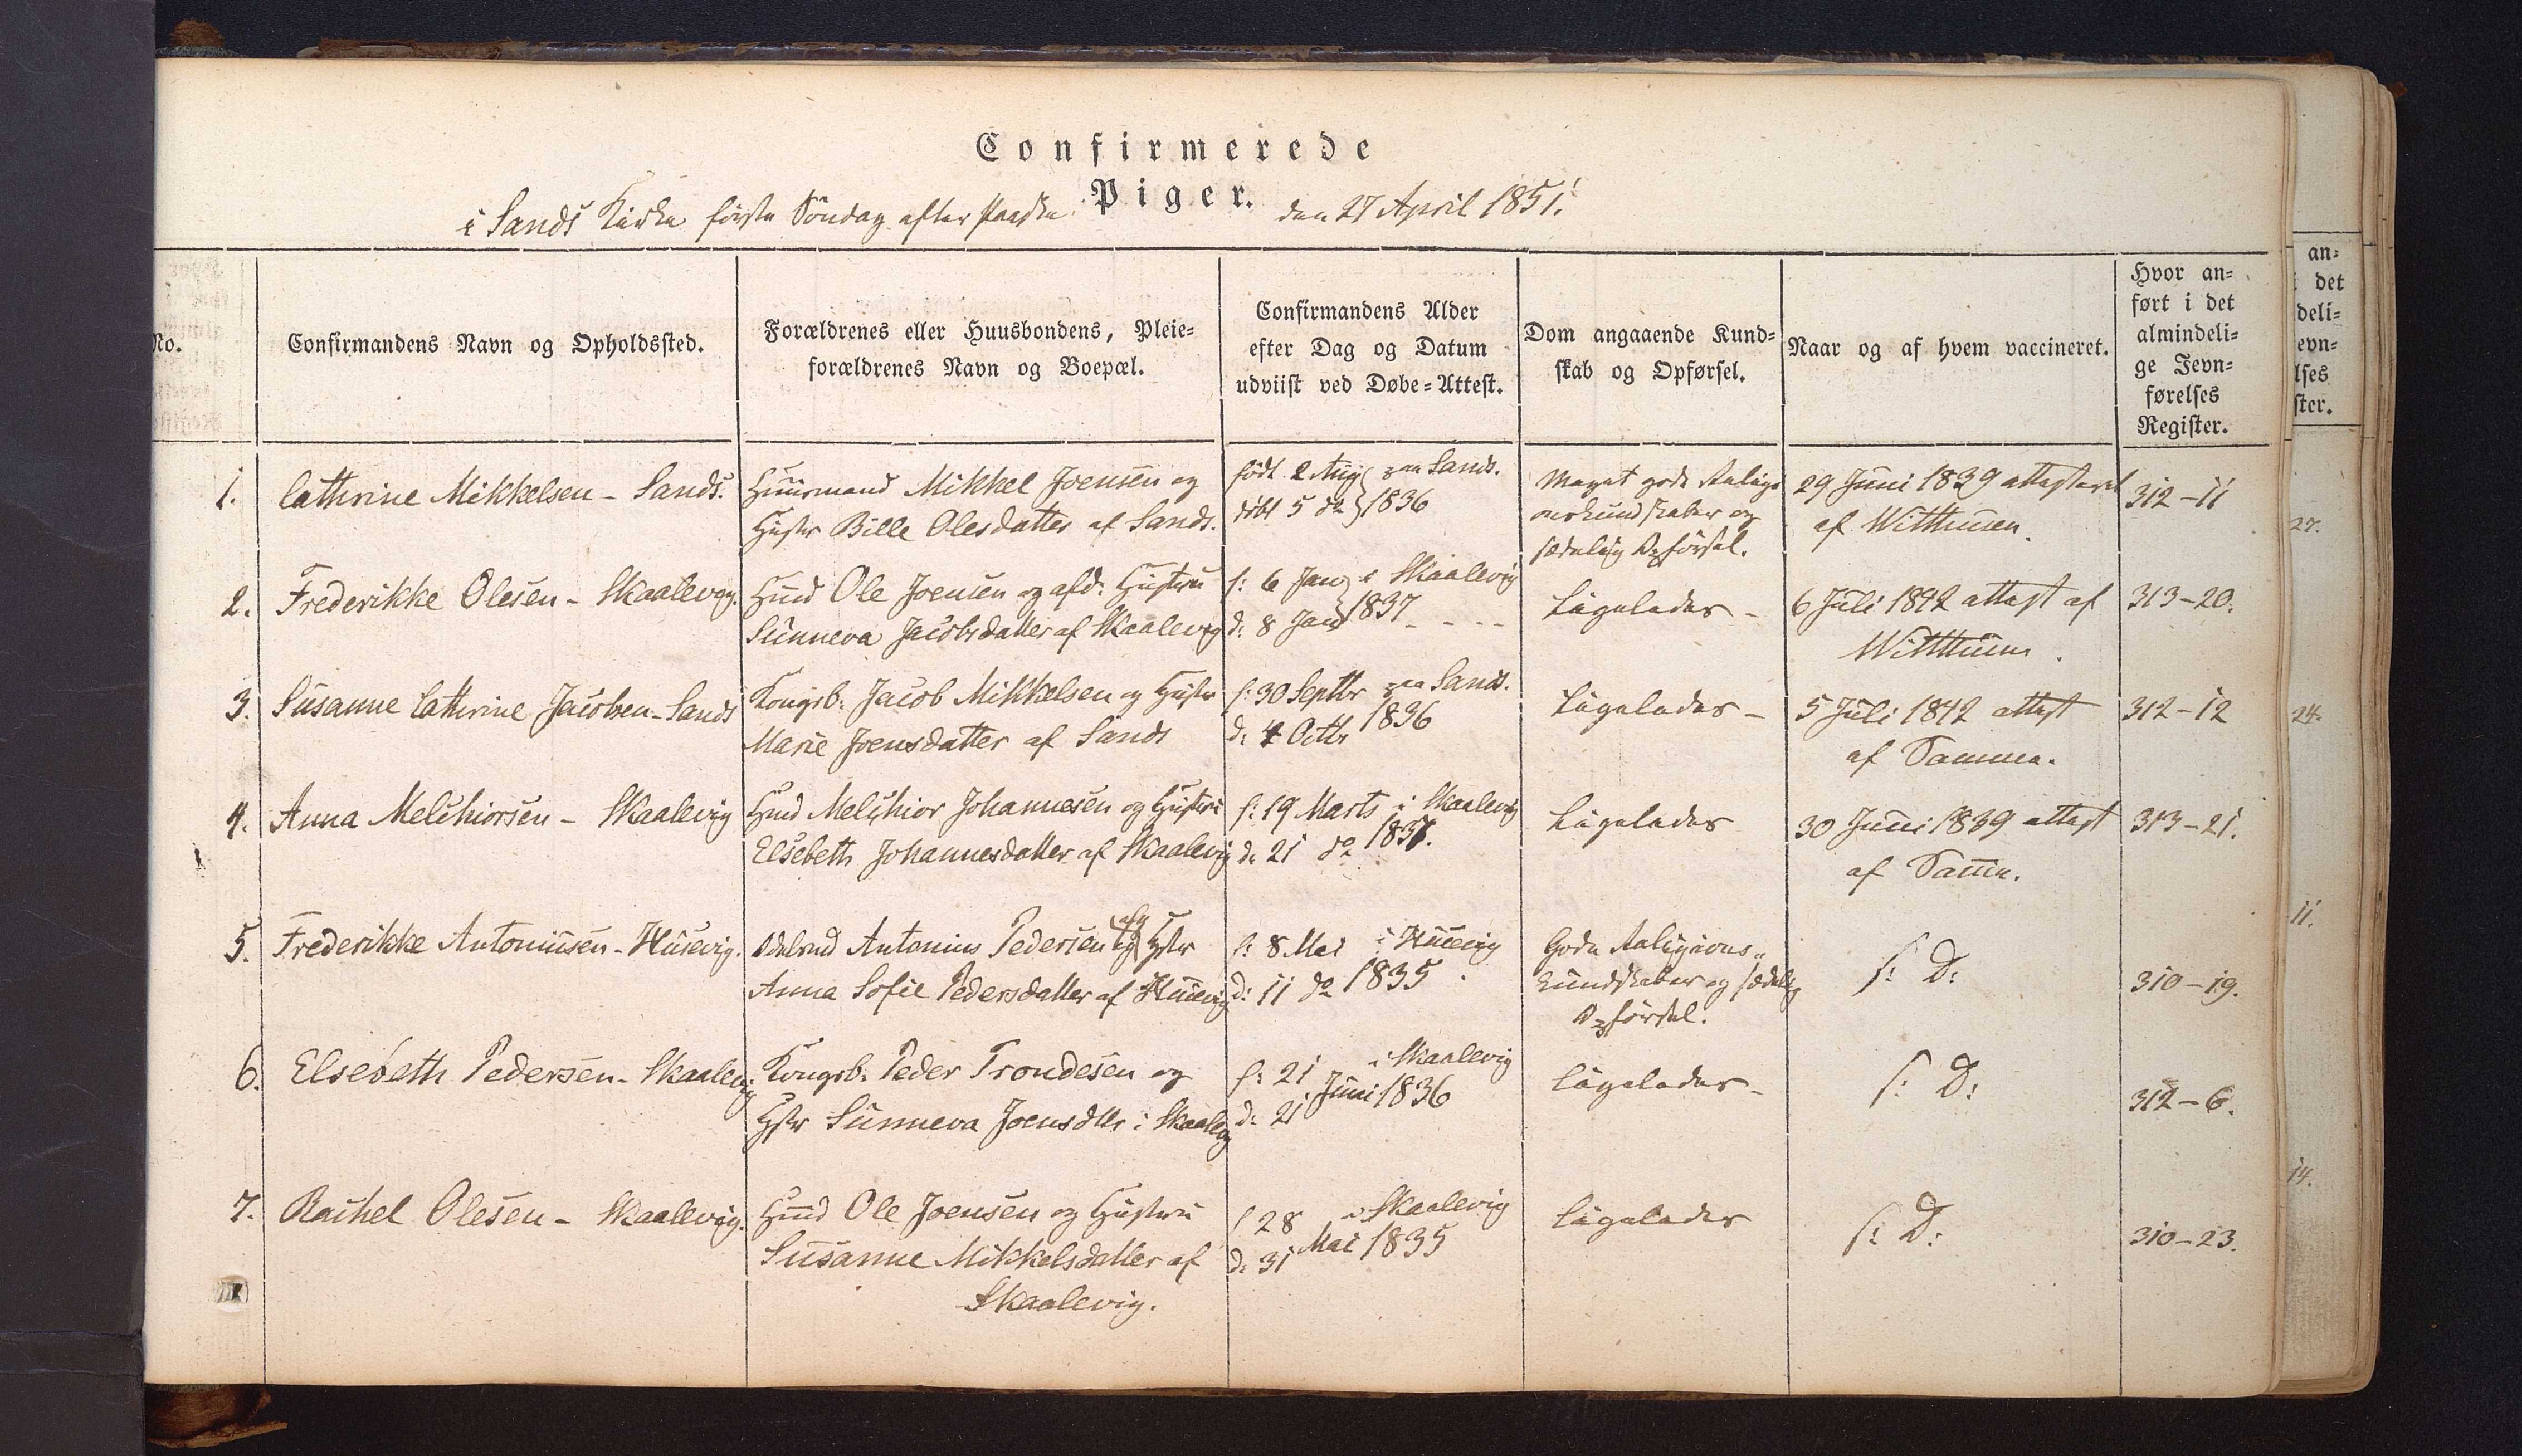 Confirmerede
Piger.
i Sands Kirke første Söndag efter Paaske den 27 April 1851.
No.
Confirmandens Navn og Opholdssted.
Forældrenes eller Huusbondens, Pleie=
forældrenes Navn og Boepæl.
Confirmandens Alder
efter Dag og Datum
udviist ved Døbe=Attest.
Dom angaaende Kund=
skab og Opførsel.
Naar og af hvem vaccineret.
Hvor an=
ført i det
almindeli=
ge Jevn=
førelses
Register.
an=
det
deli=
evn=
lses
ster.
1.
Cathrine Mikkelsen - Sands.
Huusmand Mikkel Joensen og
Hustr Bille Olesdatter af Sands.
født 2 Aug paa Sands.
döbt 5 do 1836
Meget gode Religi
onskundskaber og
sædelig Opförsel.
29 Juni 1839 attesteret
af Witthusen.
312-11
27.
2.
Frederikke Olesen - Skaalevig.
Huusmd Ole Joensen og afd: Hustru
Sunneva Jacobsdatter af Skaalevig
f: 6 Jan i Skaalevig
d: 8 Jan 1837 - - -
Ligeledes -
6 Juli 1842 attest af
Witthusen.
313-20.
3.
Susanne Cathrine Jacobsen - Sands
Kongsb. Jacob Mikkelsen og Hustr
Marie Joensdatter af Sands
f: 30 Septbr paa Sands.
d: 4 Octbr 1836
Ligeledes -
5 Juli 1842 attest
af Samme.
312-12
24.
4.
Anna Melchiorsen - Skaalevig
Hmd Melchior Johannesen og Hustru
Elsebeth Johannesdatter af Skaalevig
f: 19 Marts i Skaalevig
d. 21 do 1837.
Ligeledes
30 Juni 1839 attest
af Samme.
313-21.
11.
5.
Frederikke Antoniusen - Husevig.
Antonius Pedersen og Hstr
Anna Sofie Pedersdatter af Husevig
f: 8 Mai i Husevig
d: 11 do 1835.
Gode Religions=
kundskaber og sædelig
Opförsel.
f: D:
310-19.
6.
Elsebeth Pedersen - Skaalevig
Kongsb. Peder Trondesen og
Hstr Sunneva Joensdttr i Skaalevig
f: 21 i Skaalevig
d: 21 Juni 1836
Ligeledes -
f: D:
312-6.
14.
7.
Rachel Olesen - Skaalevig.
Huusmd Ole Joensen og Hustru
Susanne Mikkelsdatter af
Skaalevig.
f 28 i Skaalevig
d: 31 Mai 1835
Ligeledes
f: D:
310-23.